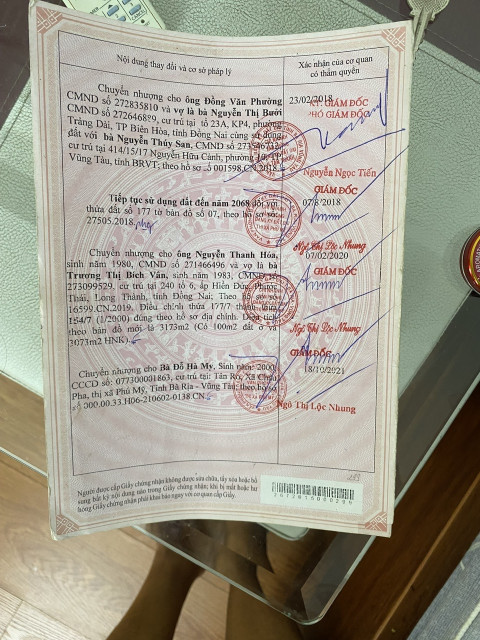 Nội dung thay đổi và cơ sở pháp lý
Xác nhận của cơ quan
có thẩm quyền
Chuyển nhượng cho ông Đồng Văn Phường
CMND số 272835810 và vợ là bà Nguyễn Thị Bưởi
CMND số 272646889, cư trú tại tổ 23A, KP4, phường
Trảng Dài, TP Biên Hòa, tỉnh Đồng Nai cùng sử dụng
đất với bà Nguyễn Thúy San, CMND số
cư trú tại 414/15/17 Nguyễn Hữu Cảnh, phường
Vũng Tàu, tỉnh BRVT, theo hồ sơ số 001598.CN.2018
23/02/2018
KT. GIÁM ĐỐC
PHÓ GIÁM ĐỐC
Nguyễn Ngọc Tiến
Tiếp tục sử dụng đất đến năm 2068 đối với
thửa đất số 177 tờ bản đồ số 07, theo hồ sơ số
27505.2018
GIÁM ĐỐC
07/8/2018
Ngô Thị Lộc Nhung
Chuyển nhượng cho ông Nguyễn Thanh Hóa,
sinh năm 1980, CMND số 271466496 và vợ là bà
Trương Thị Bích Vân, sinh năm 1983, CMND số
273099529, cư trú tại 240 tổ 6, ấp Hiền Đức, Phước
Thái, Long Thành, tỉnh Đồng Nai; Theo hồ sơ
16599.CN.2019. Điều chỉnh thửa 177/7 thành thửa
164/7 (1/2000) đúng theo hồ sơ địa chính. Diện tích
theo bản đồ mới là 3173m2 (Có 100m2 đất ở và
3073m2 HNK).
07/02/2020
GIÁM ĐỐC
Ngô Thị Lộc Nhung
Chuyển nhượng cho Bà Đỗ Hà My, Sinh năm: 2000,
CCCD số: 077300001863, cư trú tại: Tân Ro, Xã Châu
Pha, thị xã Phú Mỹ, Tỉnh Bà Rịa - Vũng Tàu; theo hồ sơ
số 000.00.33.H06-210602-0138.CN
GIÁM ĐỐC
18/10/2021
Ngô Thị Lộc Nhung
Người được cấp Giấy chứng nhận không được sửa chữa, tẩy xóa hoặc bổ
sung bất kỳ nội dung nào trong Giấy chứng nhận; khi bị mất hoặc hư
hỏng Giấy chứng nhận phải khai báo ngay với cơ quan cấp Giấy.